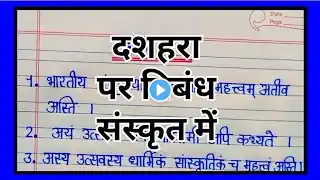 Date
Page
दशहरा
पर निबंध
संस्कृत में
1. भारतीय महत्त्वम् अतीव
अस्ति ।
2. अयं कथ्यते ।
3. अस्य उत्सवस्य धार्मिकं सांस्कृतिकं च महत्त्वं अस्ति।